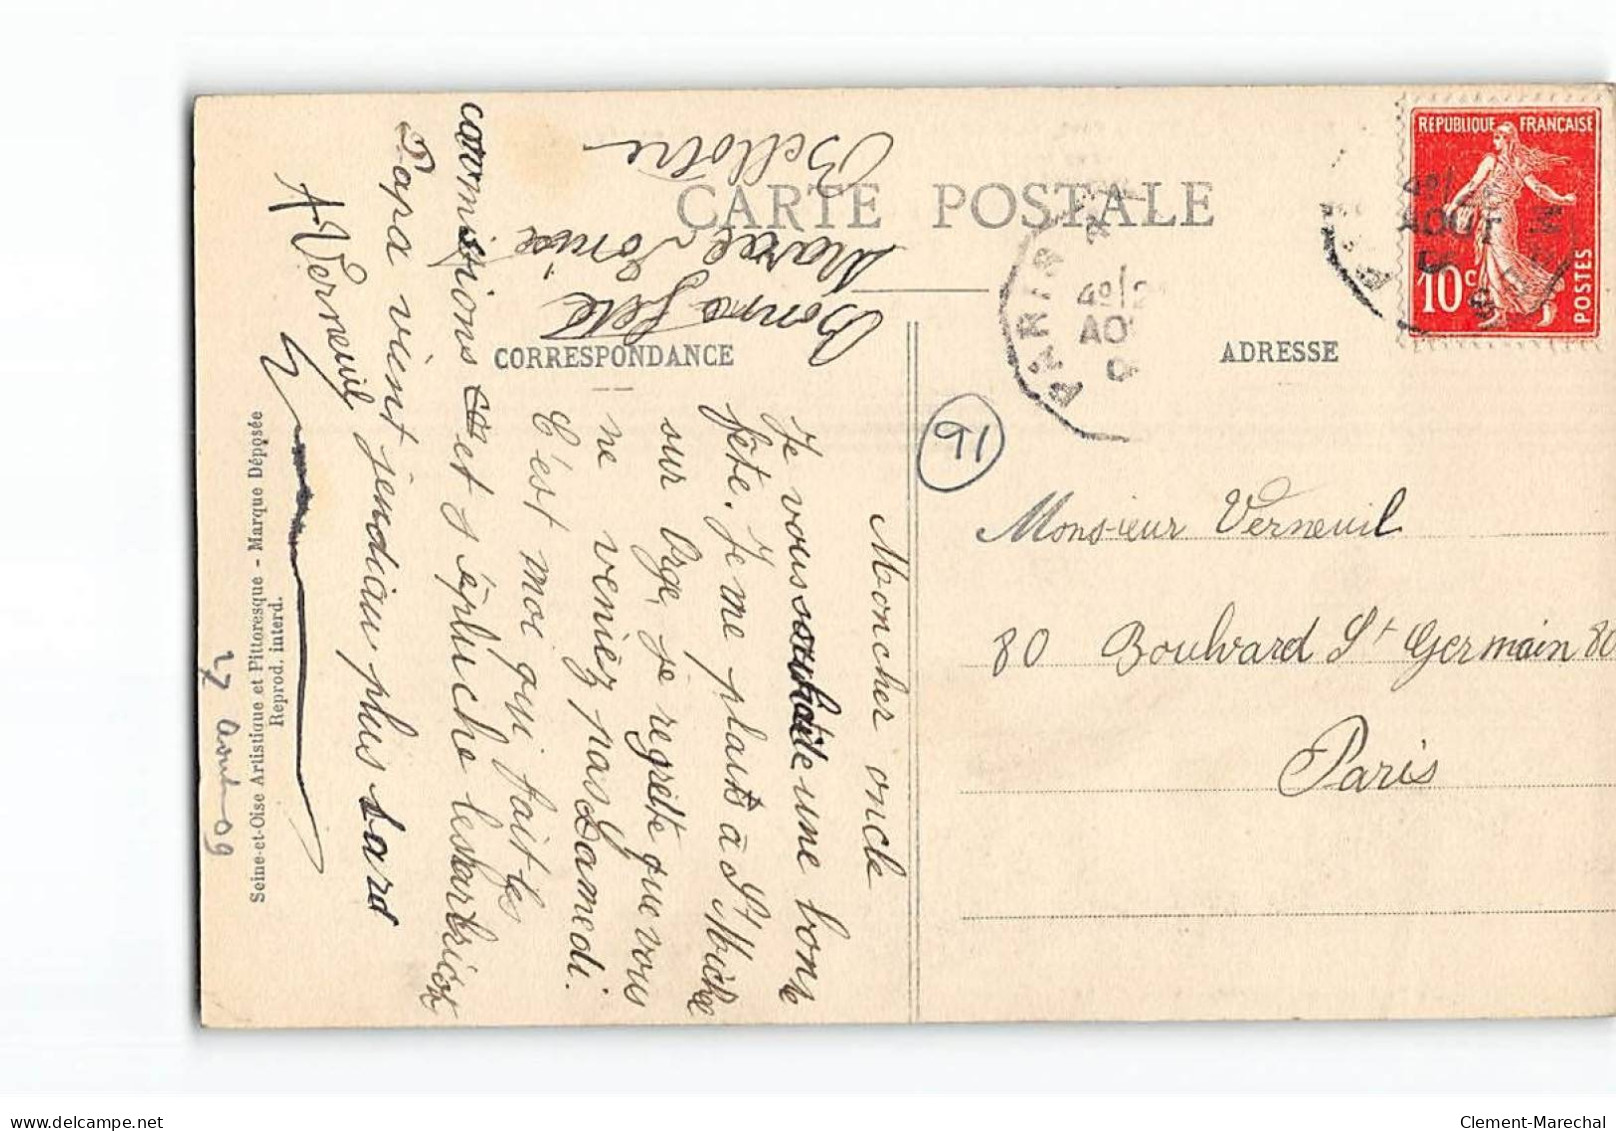 CARTE POSTALE
CORRESPONDANCE
ADRESSE
REPUBLIQUE FRANCAISE
10c
POSTES
PARIS
AOUT
91
Monsieur Verneuil
80 Boulvard St Germain 80
Paris
Moncher oncle
Je vous souhaite une bonne
fête. Je me plaits à St Michel
sur Orge, je regrette que vous
ne veniez pas Samedi.
C'est moi qui fait les
commissions et s'épluche les haricot
Papa vient jendiau plus tard
A Verneuil
Bonne fête
Marcel Louise
Bellotre
Seine-et-Oise Artistique et Pittoresque - Marque Déposée
Reprod. interd.
27 Aout 09
delcampe.net
Clement-Marechal